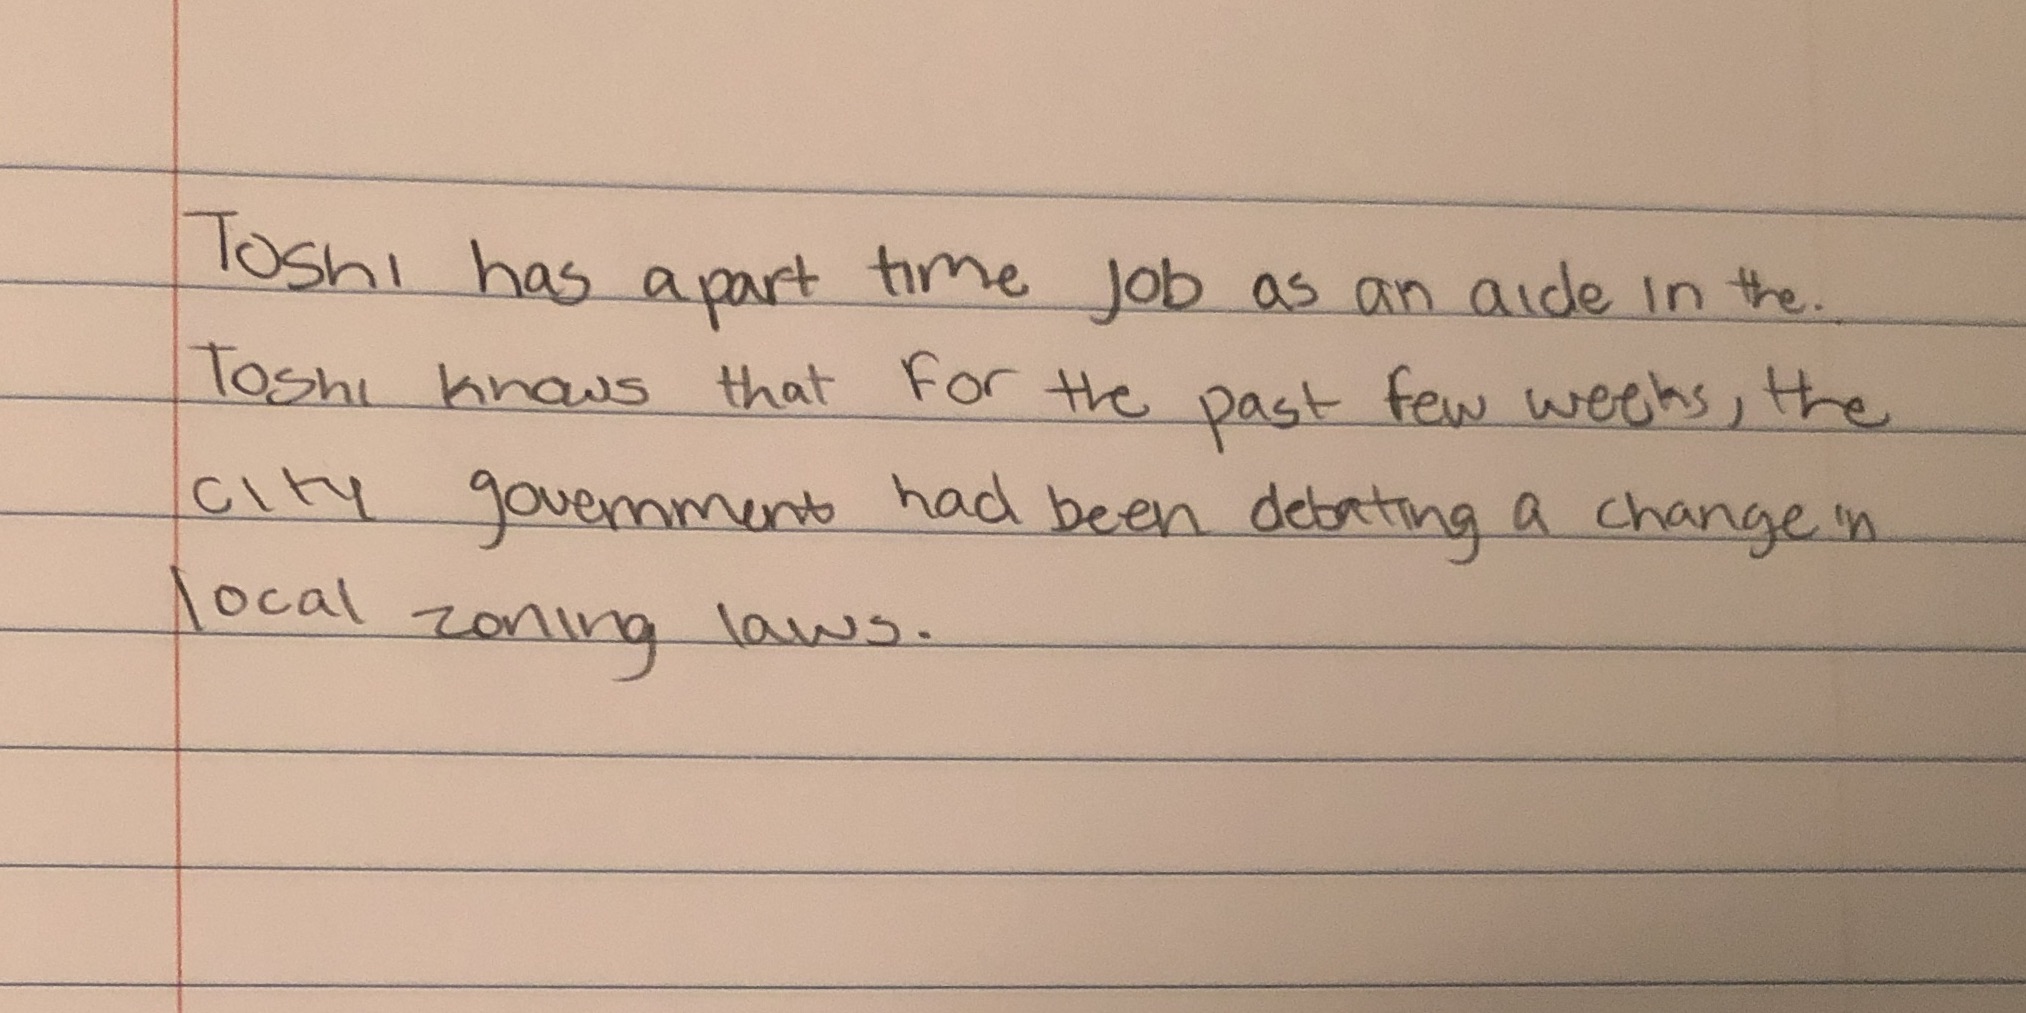 Toshi has a part time job as an aide in the.
Toshi knows that for the past few weeks, the
city government had been debating a change in
local zoning laws.